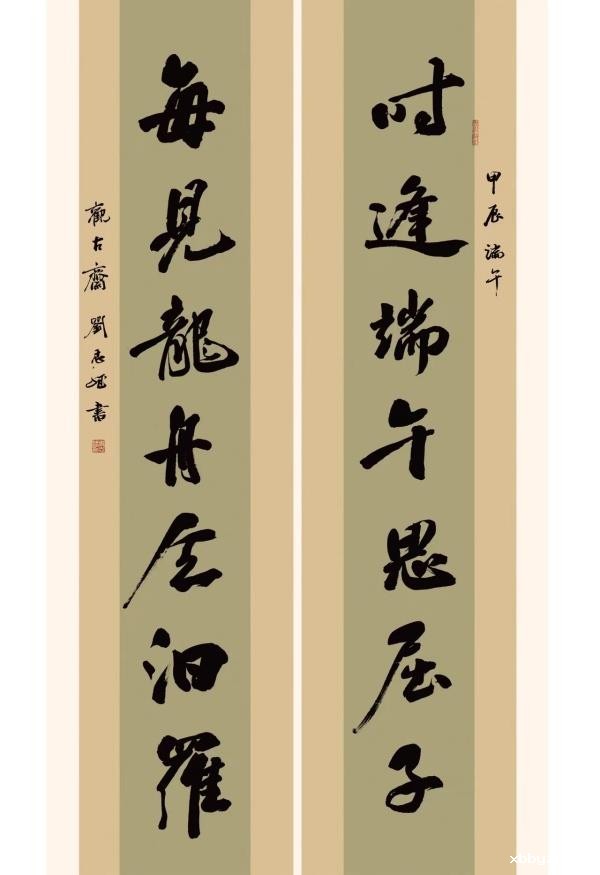 甲辰端午
时逢端午思屈子
每見龍舟念汨羅
觀古齋劉志斌書